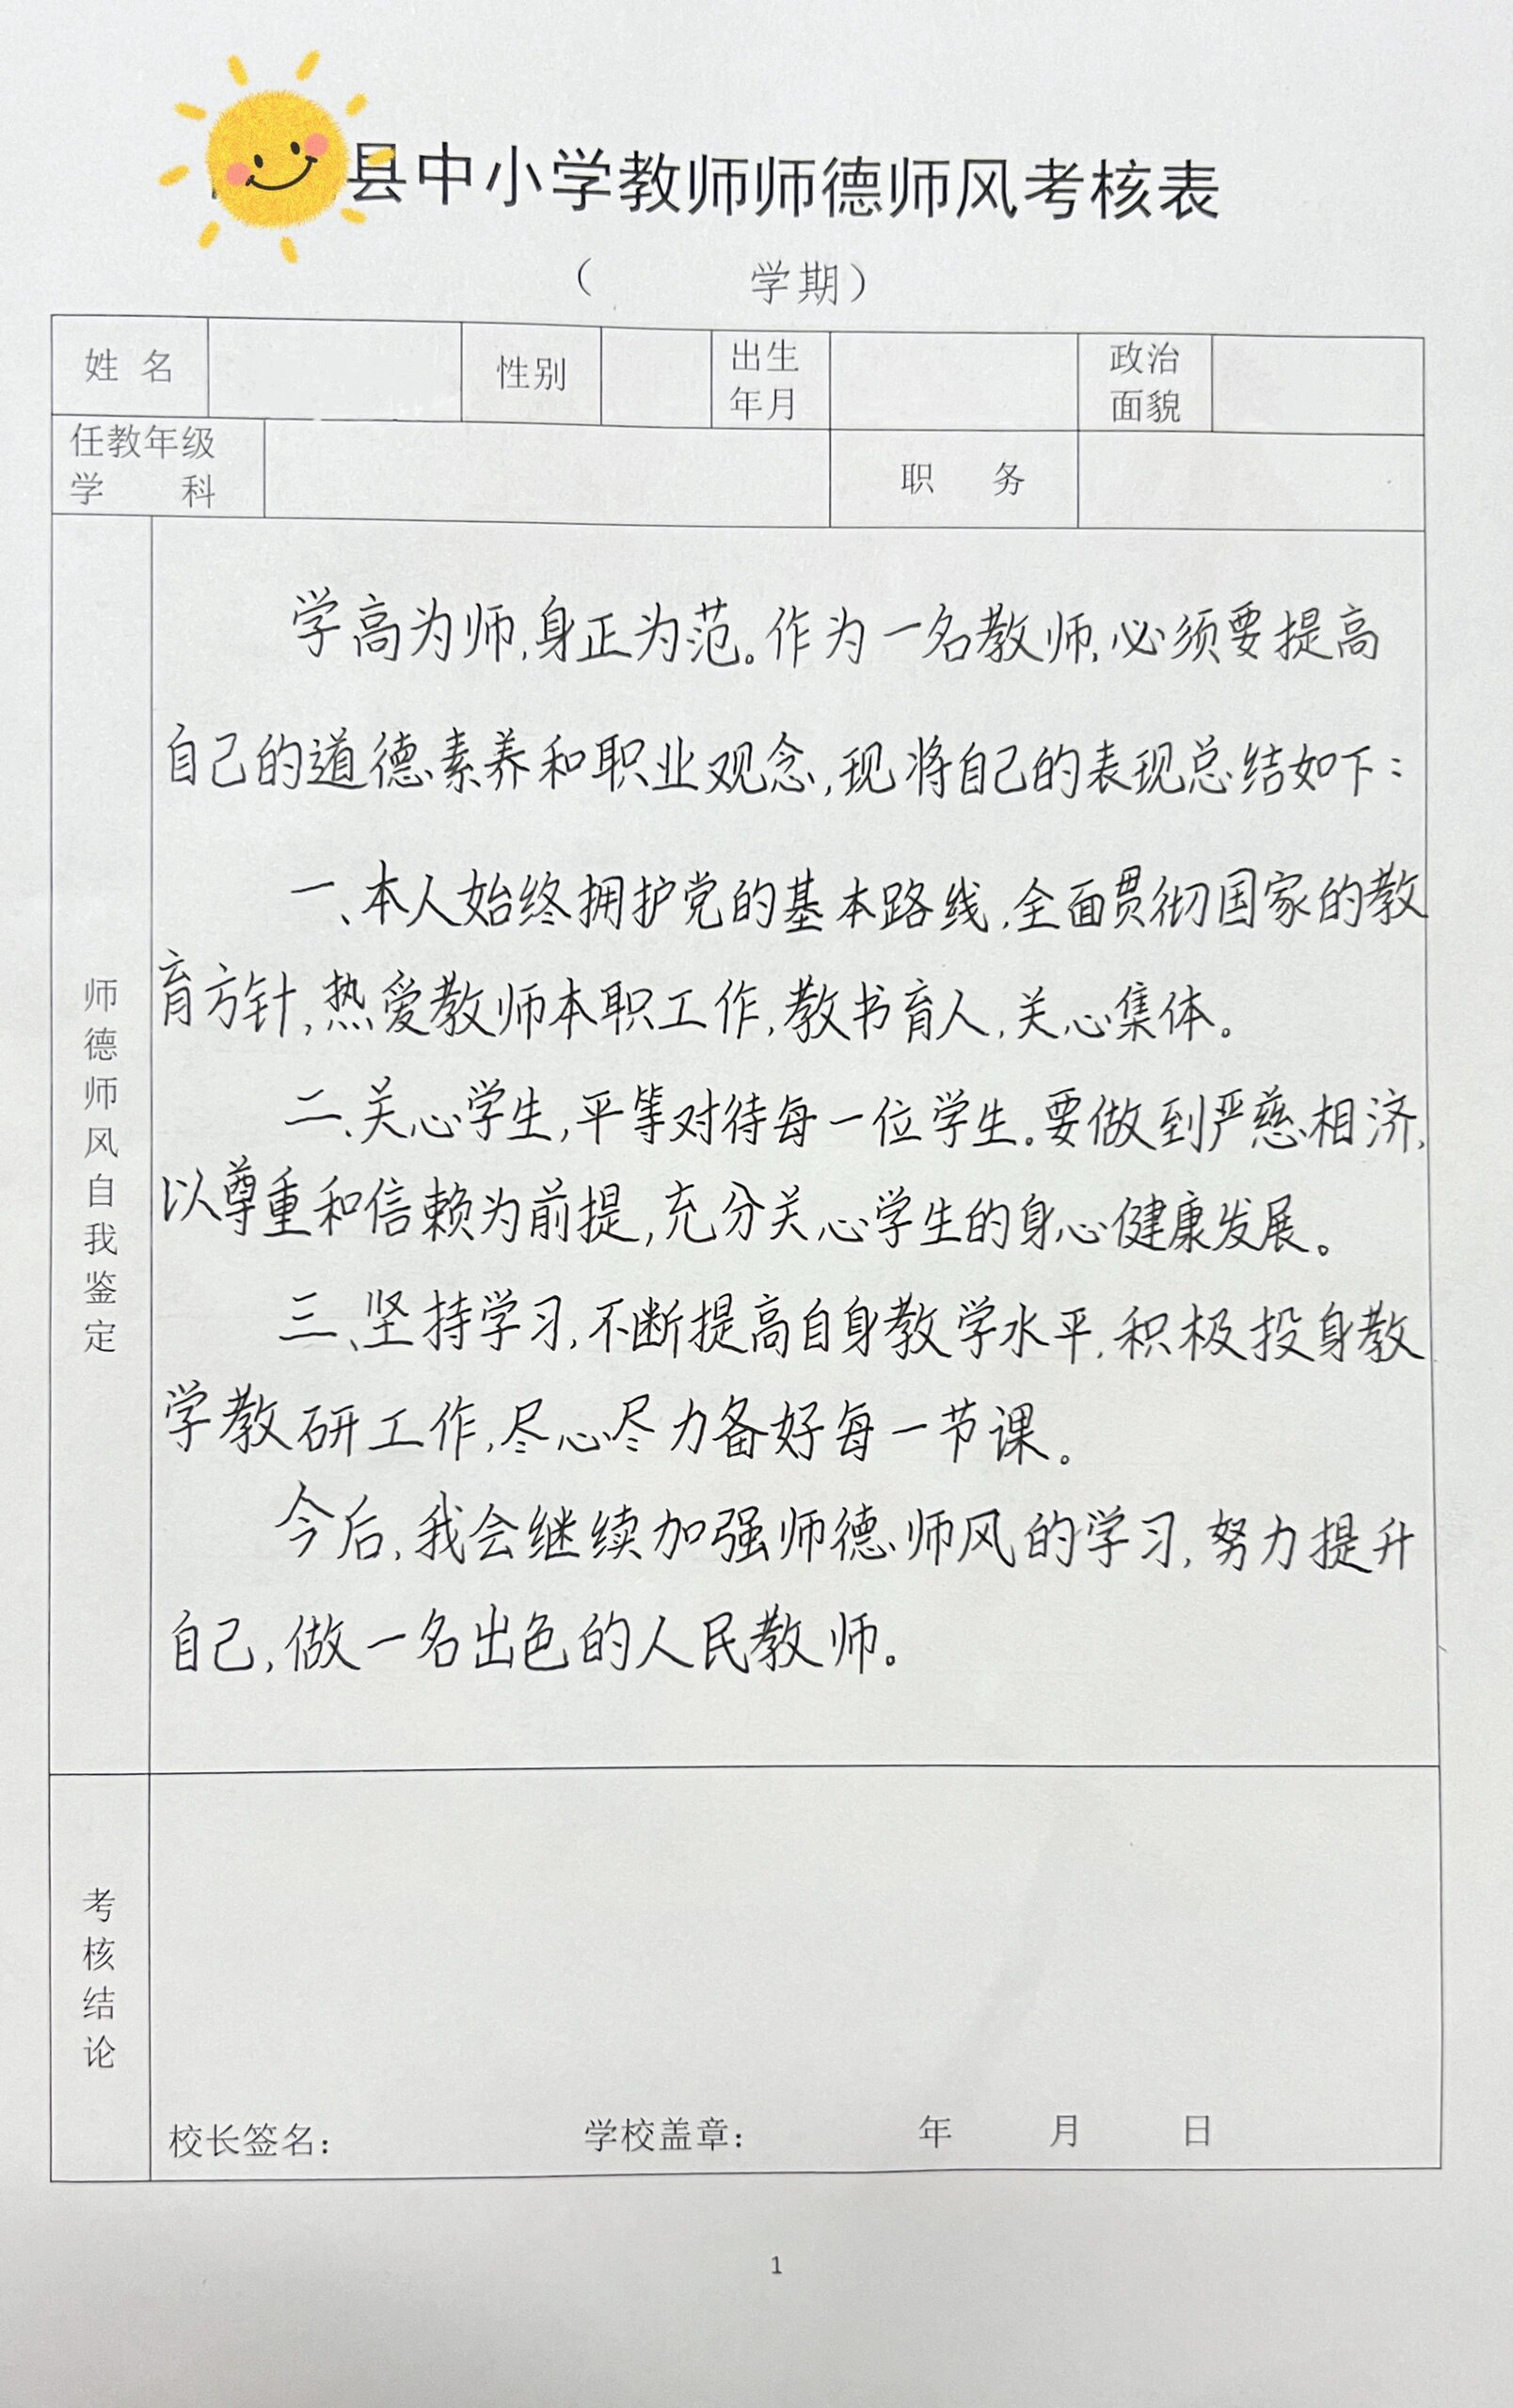 县中小学教师师德师风考核表
（ 学期）
姓 名 性别 出生年月 政治面貌
任教年级学 科 职 务
师德师风自我鉴定
学高为师,身正为范。作为一名教师,必须要提高
自己的道德素养和职业观念,现将自己的表现总结如下:
一、本人始终拥护党的基本路线,全面贯彻国家的教
育方针,热爱教师本职工作,教书育人,关心集体。
二、关心学生,平等对待每一位学生。要做到严慈相济,
以尊重和信赖为前提,充分关心学生的身心健康发展。
三、坚持学习,不断提高自身教学水平,积极投身教
学教研工作,尽心尽力备好每一节课。
今后,我会继续加强师德师风的学习,努力提升
自己,做一名出色的人民教师。
考核结论
校长签名： 学校盖章： 年 月 日
1